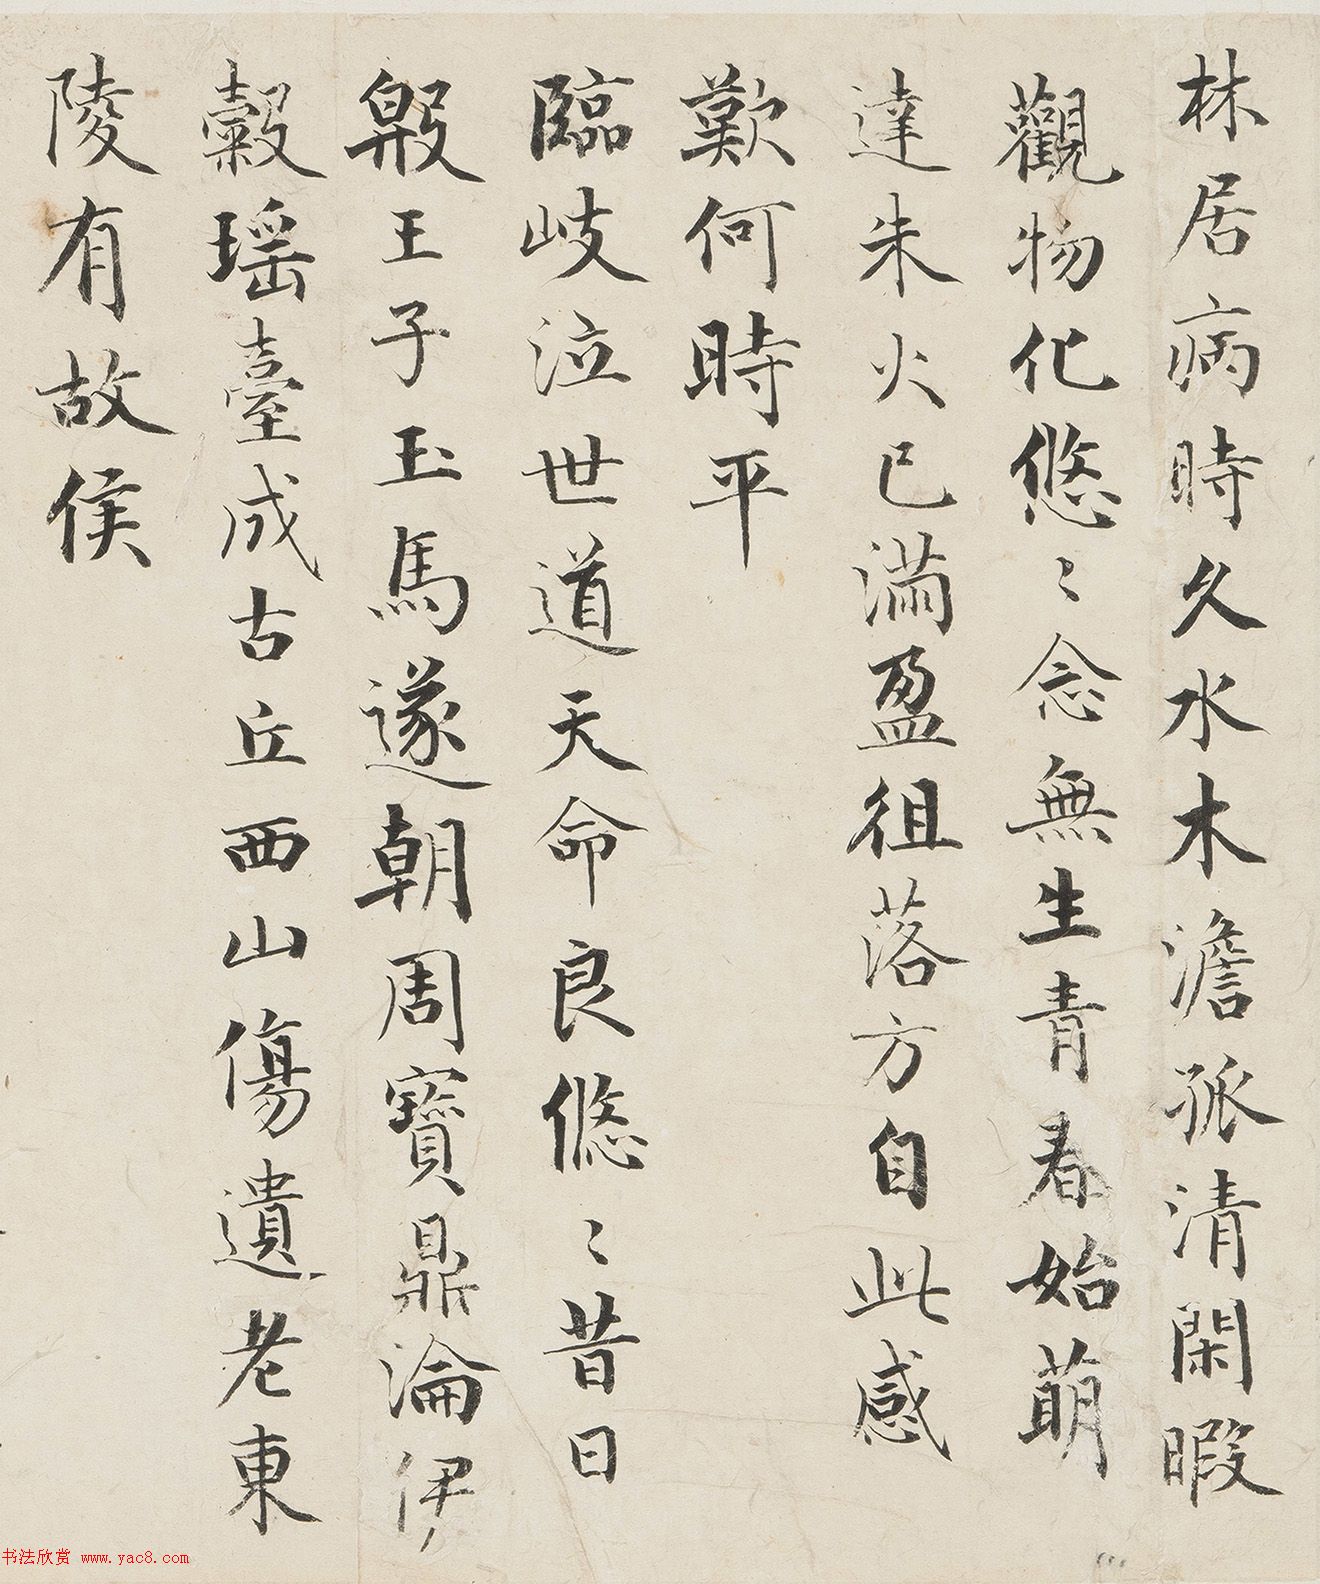 林居病時久水木澹孤清閑暇
觀物化悠〻念無生青春始萌
達朱火已滿盈徂落方自此感
歎何時平
臨岐泣世道天命良悠〻昔日
殷王子玉馬遂朝周寶鼎淪伊
穀瑶臺成古丘西山傷遺老東
陵有故侯
书法欣赏 www.yac8.com